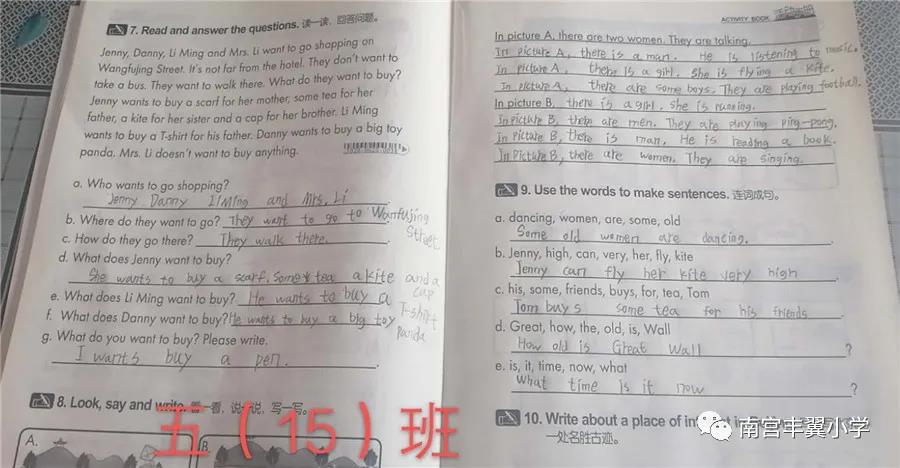 7. Read and answer the questions. 读一读，回答问题。
Jenny, Danny, Li Ming and Mrs. Li want to go shopping on
Wangfujing Street. It's not far from the hotel. They don't want to
take a bus. They want to walk there. What do they want to buy?
Jenny wants to buy a scarf for her mother, some tea for her
father, a kite for her sister and a cap for her brother. Li Ming
wants to buy a T-shirt for his father. Danny wants to buy a big toy
panda. Mrs. Li doesn't want to buy anything.
a. Who wants to go shopping?
Jenny Danny LiMing and Mrs. Li
b. Where do they want to go? They want to go to Wanfujing
Street.
c. How do they go there? They walk there.
d. What does Jenny want to buy?
She wants to buy a scarf, some tea a kite and a
cap
e. What does Li Ming want to buy? He wants to buy a
T-shirt
f. What does Danny want to buy? He wants to buy a big toy
panda
g. What do you want to buy? Please write.
I wants buy a pen.
8. Look, say and write. 看一看，说一说，写一写。
A.
B.
五（15）班
ACTIVITY BOOK 活动手册
In picture A, there are two women. They are talking.
In picture A, there is a man. He is listening to music.
In picture A, there is a girl. She is flying a kite.
In picture A, there are some boys. They are playing football.
In picture B, there is a girl. She is running.
In picture B, there are men. They are playing ping-pong.
In picture B, there is man. He is reading a book.
In picture B, there are women. They are singing.
9. Use the words to make sentences. 连词成句。
a. dancing, women, are, some, old
Some old women are dancing.
b. Jenny, high, can, very, her, fly, kite
Jenny can fly her kite very high
c. his, some, friends, buys, for, tea, Tom
Tom buys some tea for his friends
d. Great, how, the, old, is, Wall
How old is Great Wall ?
e. is, it, time, now, what
What time is it now ?
10. Write about a place of
一处名胜古迹。
南宫丰翼小学